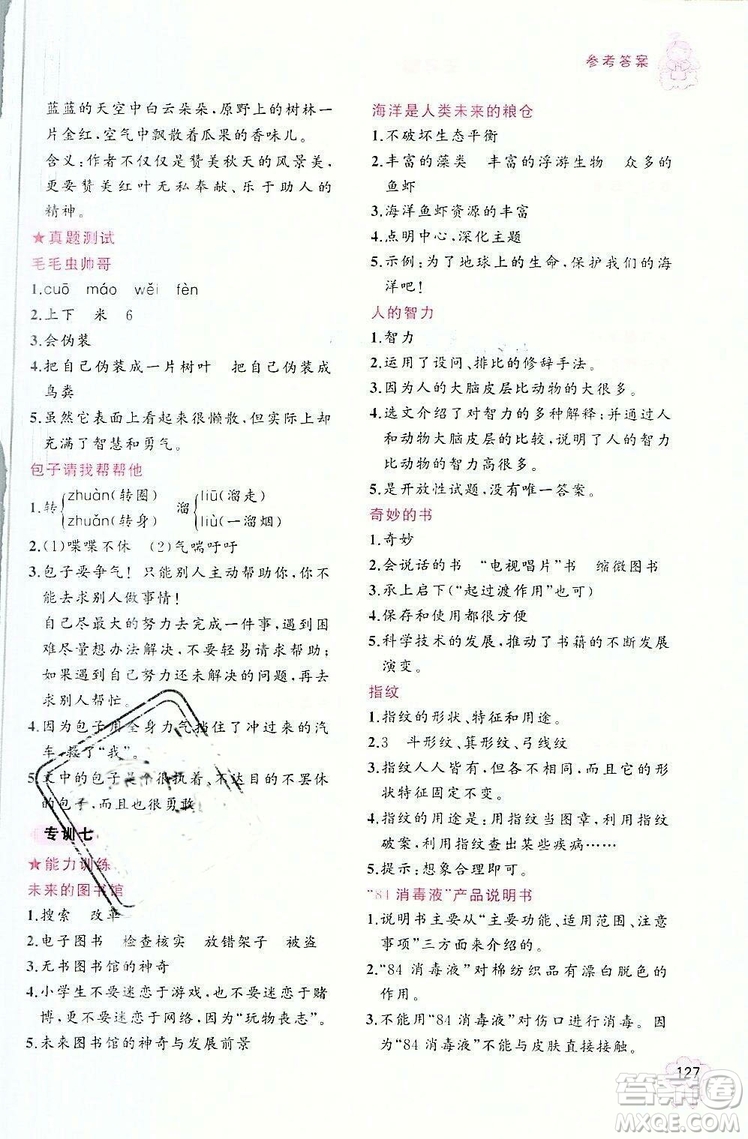 参考答案
蓝蓝的天空中白云朵朵，原野上的树林一
片金红，空气中飘散着瓜果的香味儿。
含义：作者不仅仅是赞美秋天的风景美，
更要赞美红叶无私奉献、乐于助人的
精神。
★真题测试
毛毛虫帅哥
1.cuō máo wěi fèn
2.上下 米 6
3.会伪装
4.把自己伪装成一片树叶 把自己伪装成
鸟粪
5.虽然它表面上看起来很懒散，但实际上却
充满了智慧和勇气。
包子请我帮帮他
1.转{zhuàn(转圈) zhuǎn(转身) 溜{liū(溜走) liù(一溜烟)
2.(1)喋喋不休 (2)气喘吁吁
3.包子要争气！只能别人主动帮助你，你不
能去求别人做事情！
自己尽最大的努力去完成一件事，遇到困
难尽量想办法解决，不要轻易请求帮助。
如果遇到自己努力还未解决的问题，再去
求别人帮忙。
4.因为包子用全身力气挡住了冲过来的汽
车，救了“我”。
5.文中的包子是个很执着、不达目的不罢休
的包子，而且也很勇敢。
专训七
★能力训练
未来的图书馆
1.搜索 改革
2.电子图书 检查核实 放错架子 被盗
3.无书图书馆的神奇
4.小学生不要迷恋于游戏，也不要迷恋于赌
博，更不要迷恋于网络，因为“玩物丧志”。
5.未来图书馆的神奇与发展前景
海洋是人类未来的粮仓
1.不破坏生态平衡
2.丰富的藻类 丰富的浮游生物 众多的
鱼虾
3.海洋鱼虾资源的丰富
4.点明中心，深化主题
5.示例：为了地球上的生命，保护我们的海
洋吧！
人的智力
1.智力
2.运用了设问、排比的修辞手法。
3.因为人的大脑皮层比动物的大很多。
4.选文介绍了对智力的多种解释；通过人
和动物大脑皮层的比较，说明了人的智力
比动物智力高许多。
5.是开放性试题，没有唯一答案。
奇妙的书
1.奇妙
2.会说话的书 “电视唱片”书 缩微图书
3.承上启下(“起过渡作用”也可)
4.保存和使用都很方便
5.科学技术的发展，推动了书籍的不断发展
演变。
指纹
1.指纹的形状、特征和用途。
2.3 斗形纹、箕形纹、弓线纹
3.指纹人人皆有，但各不相同，而且它的
形状特征固定不变。
4.指纹的用途是：用指纹当图章，用指纹
破案，利用指纹检查出某些疾病……
5.提示：想象合理即可。
“84消毒液”产品说明书
1.说明书主要从“主要功能、适用范围、注意
事项”三方面来介绍的。
2.“84消毒液”对棉纺织品有漂白脱色的
作用。
3.不能用“84消毒液”对伤口进行消毒。因
为“84消毒液”不能与皮肤直接接触。
127
答案圈